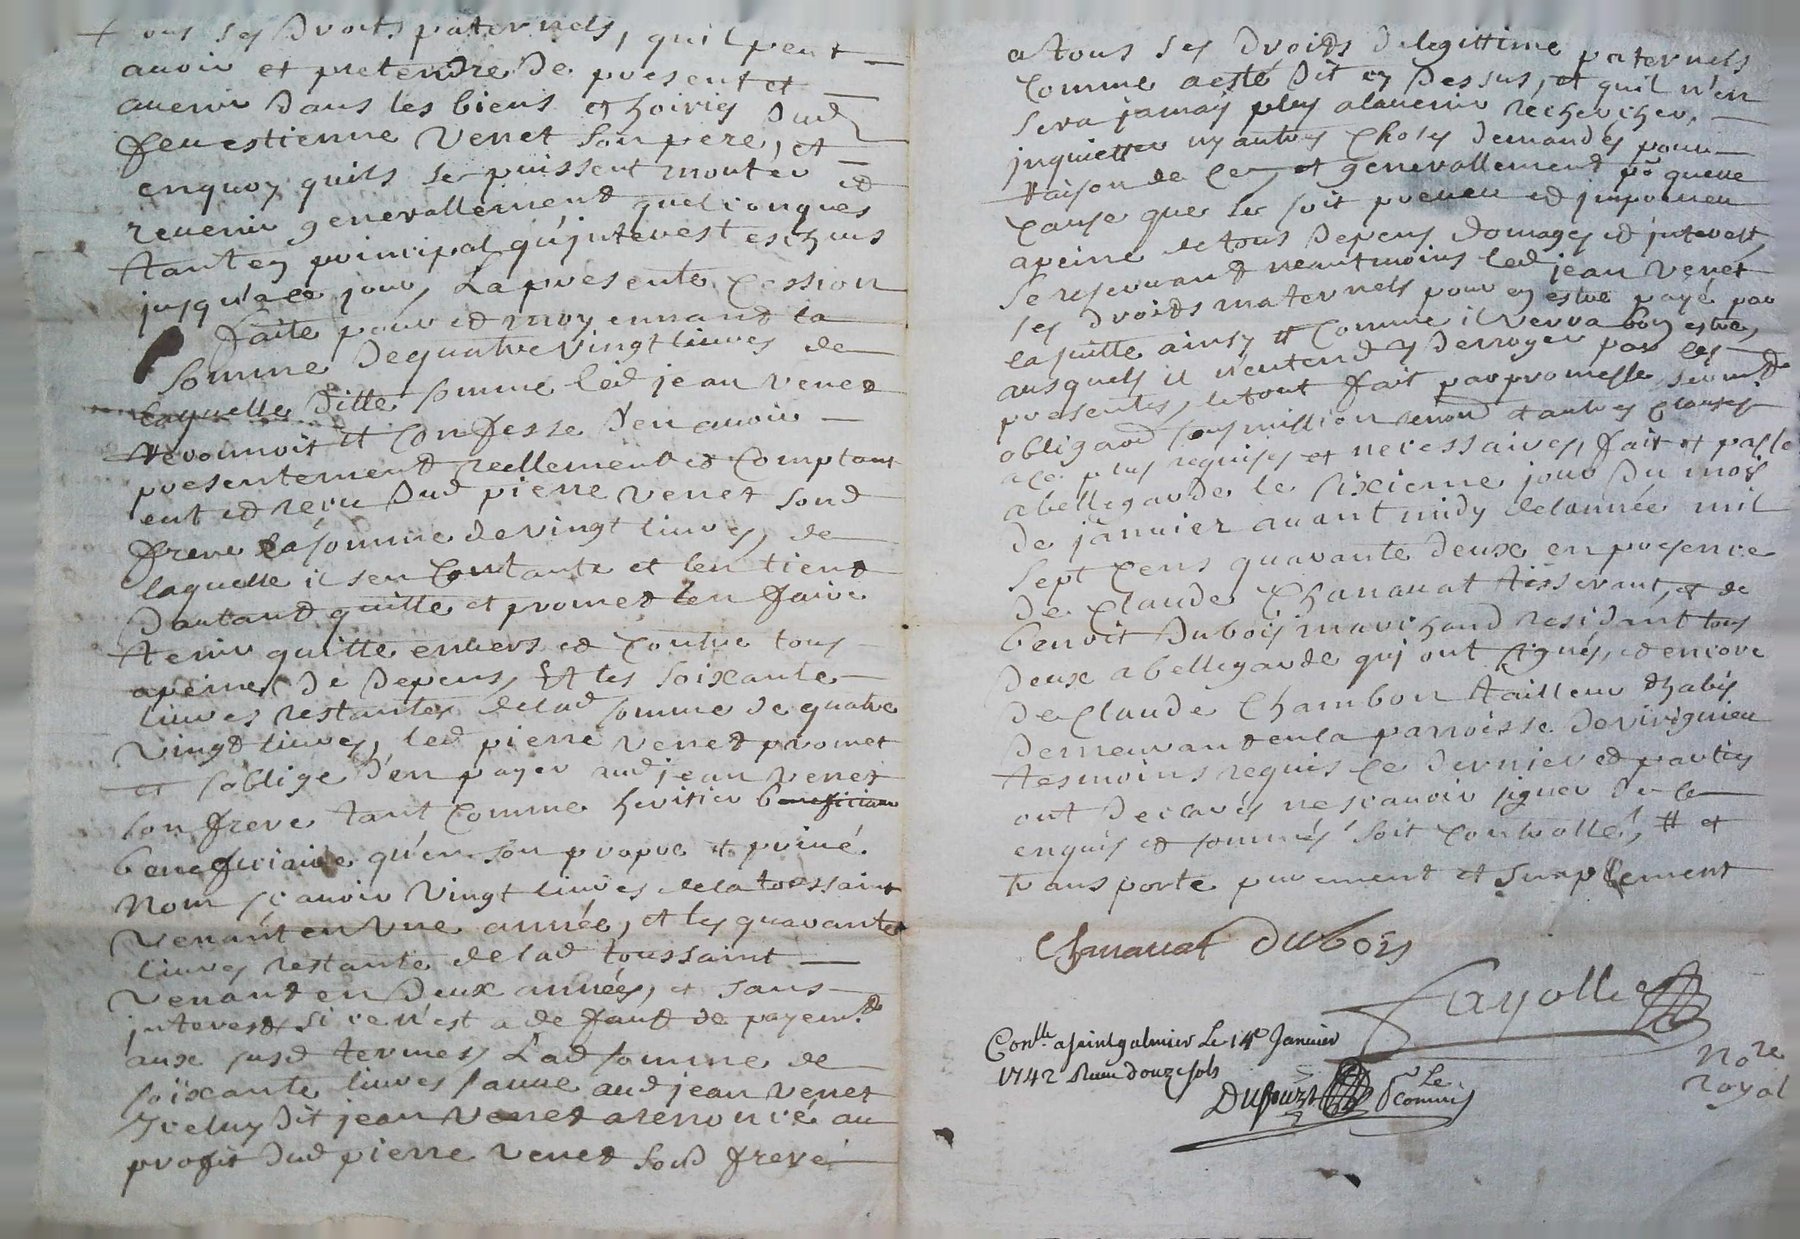 tous ses Droits paternels, quil peut
avoir et pretendre De present et
avenir Dans les biens et hoiries Dud
feu estienne Venet son pere, et
enquoy quils se puissent monter et
revenir generallement quelconques
tant en principal qu'interest eschus
jusqu'a ce jour, La presente Cession
faite pour et moyennant la
somme De quatre Vingt livres de
laquelle ditte somme led jean Venet
reconnoit et Confesse D'en avoir
presentement reellement et Comptant
eut et recu Dud pierre Venet sond
frere la somme de vingt livres, de
laquelle il sen Contante et len tient
Dautant quitte et promet len faire
tenir quitte envers et Contre tous
apeine De Depens, Et les soixante
livres restantes delad somme de quatre
Vingt livres, led pierre Venet promet
et soblige D'en payer aud jean Venet
son frere tant Comme heritier
beneficiaire qu'en son propre et privé
Nom sçavoir Vingt livres de la toussaint
Venant en Une année, et les quarante
livres restante de lad toussaint
Venant en Deux années, et sans
interest si ce n'est a defaut de payemt
aux susd termes, Lad somme de
soixante livres sauve aud jean Venet
Iceluy Dit jean Venet a renoncé au
profit Dud pierre Venet sond frere
a tous ses droits De legittime paternels
Comme a esté Dit cy Dessus, et quil n'en
sera jamais plus alavenir rechercher,
inquietter ny autres Choses Demandés pour
raison de Ce, et generallement pr quelle
Cause que ce soit preveu et impreveu
apeine de tous Depens Domages et interest,
se reservant neantmoins led jean Venet
ses droits maternels pour en estre payé par
la suitte ainsy et Comme il verra bon estre,
ausquels il n'entend y Deroger par les
presentes, le tout fait par promesse sermt
obligaõn soumission renonõn et autres Clauses
a ce plus requises et necessaires, fait et passé
a bellegarde le sixieme jour Du mois
De janvier avant midy de lannée mil
sept Cens quarante Deux en presence
De Claude Chanavat tisserant, et de
benoit Dubois marchand residant tous
Deux a bellegarde qui ont signés, et encore
De Claude Chambon tailleur D'habis
Demeurant en la parroisse De virignieu
tesmoins requis Ce Dernier et parties
ont Declarés ne sçavoir signer De ce
enquis et sommés soit Controllé, # et
transporte purement et simplement
Chanavat Dubois
Fayolle
Nore
Royal
Conlle a saint galmier Le 14e Janvier
1742 Reçu douze sols
Le
Commis